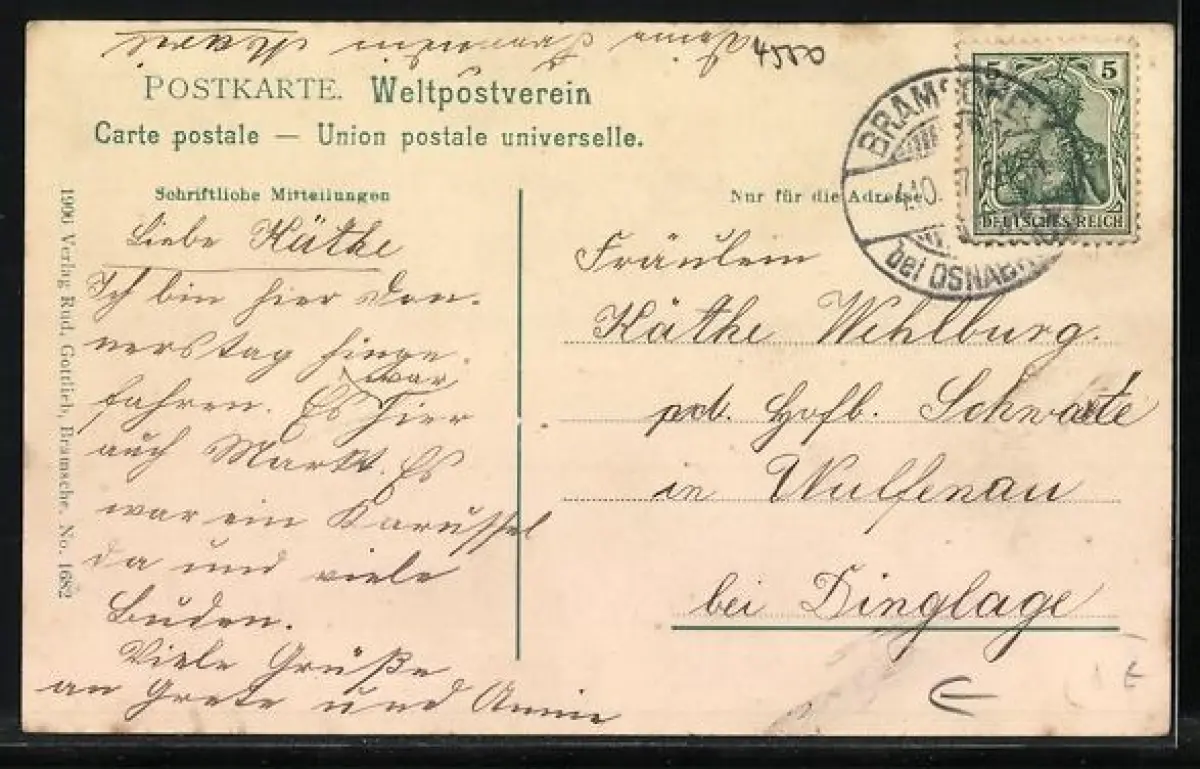 4500
Deine Freundin
POSTKARTE. Weltpostverein
Carte postale — Union postale universelle.
Schriftliche Mitteilungen
Liebe Käthe
Ich bin hier Don-
nerstag hinge-
fahren. Es war hier
auch Markt. Es
war ein Karussel
da und viele
Buden.
Viele Grüße
an Grete und Annie
1906 Verlag Rud. Gottlieb, Bramsche. No. 1682
5 5
DEUTSCHES REICH
BRAMSCHE
4.10.
bei OSNAB
Nur für die Adresse
Fräulein
Käthe Wehlburg.
Hofb. Schwarte
in Wulfenau
bei Dinglage